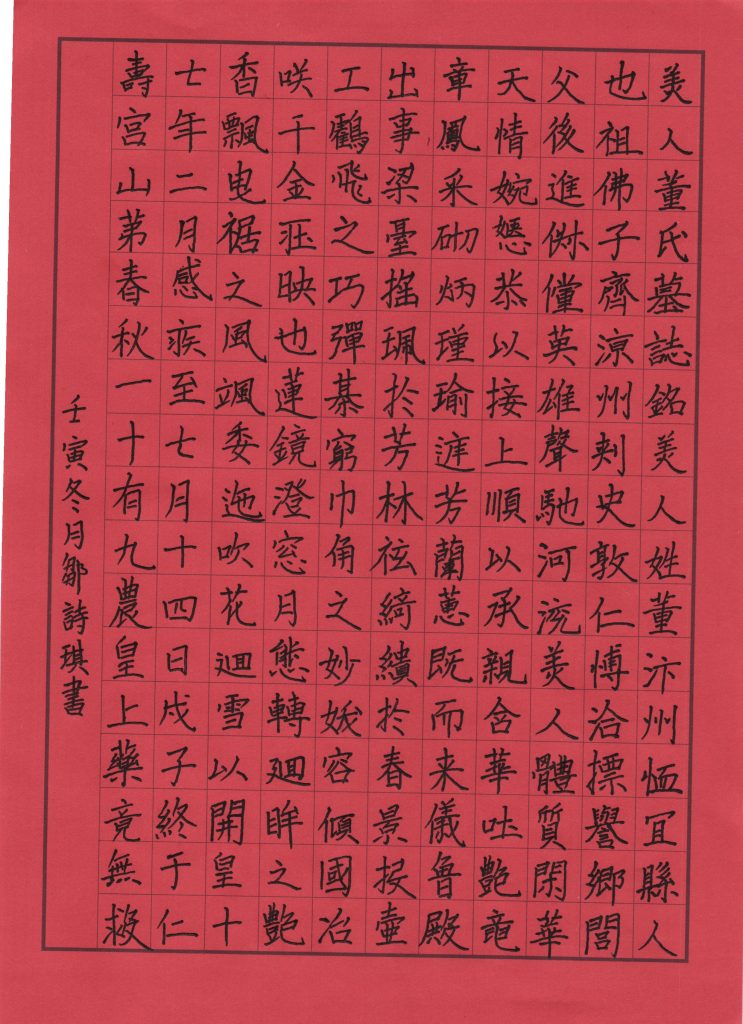 美人董氏墓誌銘美人姓董汴州恤冝縣人
也祖佛子齊涼州刺史敦仁博洽摽譽鄉閭
父後進俶儻英雄聲馳河渷美人體質閑華
天情婉嫕恭以接上順以承親含華吐艷竜
章鳳采砌炳瑾瑜庭芳蘭蕙既而来儀魯殿
出事梁臺搖珮於芳林袨綺繢於春景投壺
工鸖飛之巧彈棊窮巾角之妙妖容傾國冶
咲千金莊映池蓮鏡澄窓月態轉廻眸之艷
香飄曳裾之風颯委迤吹花迴雪以開皇十
七年二月感疾至七月十四日戊子終于仁
壽宮山苐春秋一十有九農皇上藥竟無救
壬寅冬月鄒詩琪書